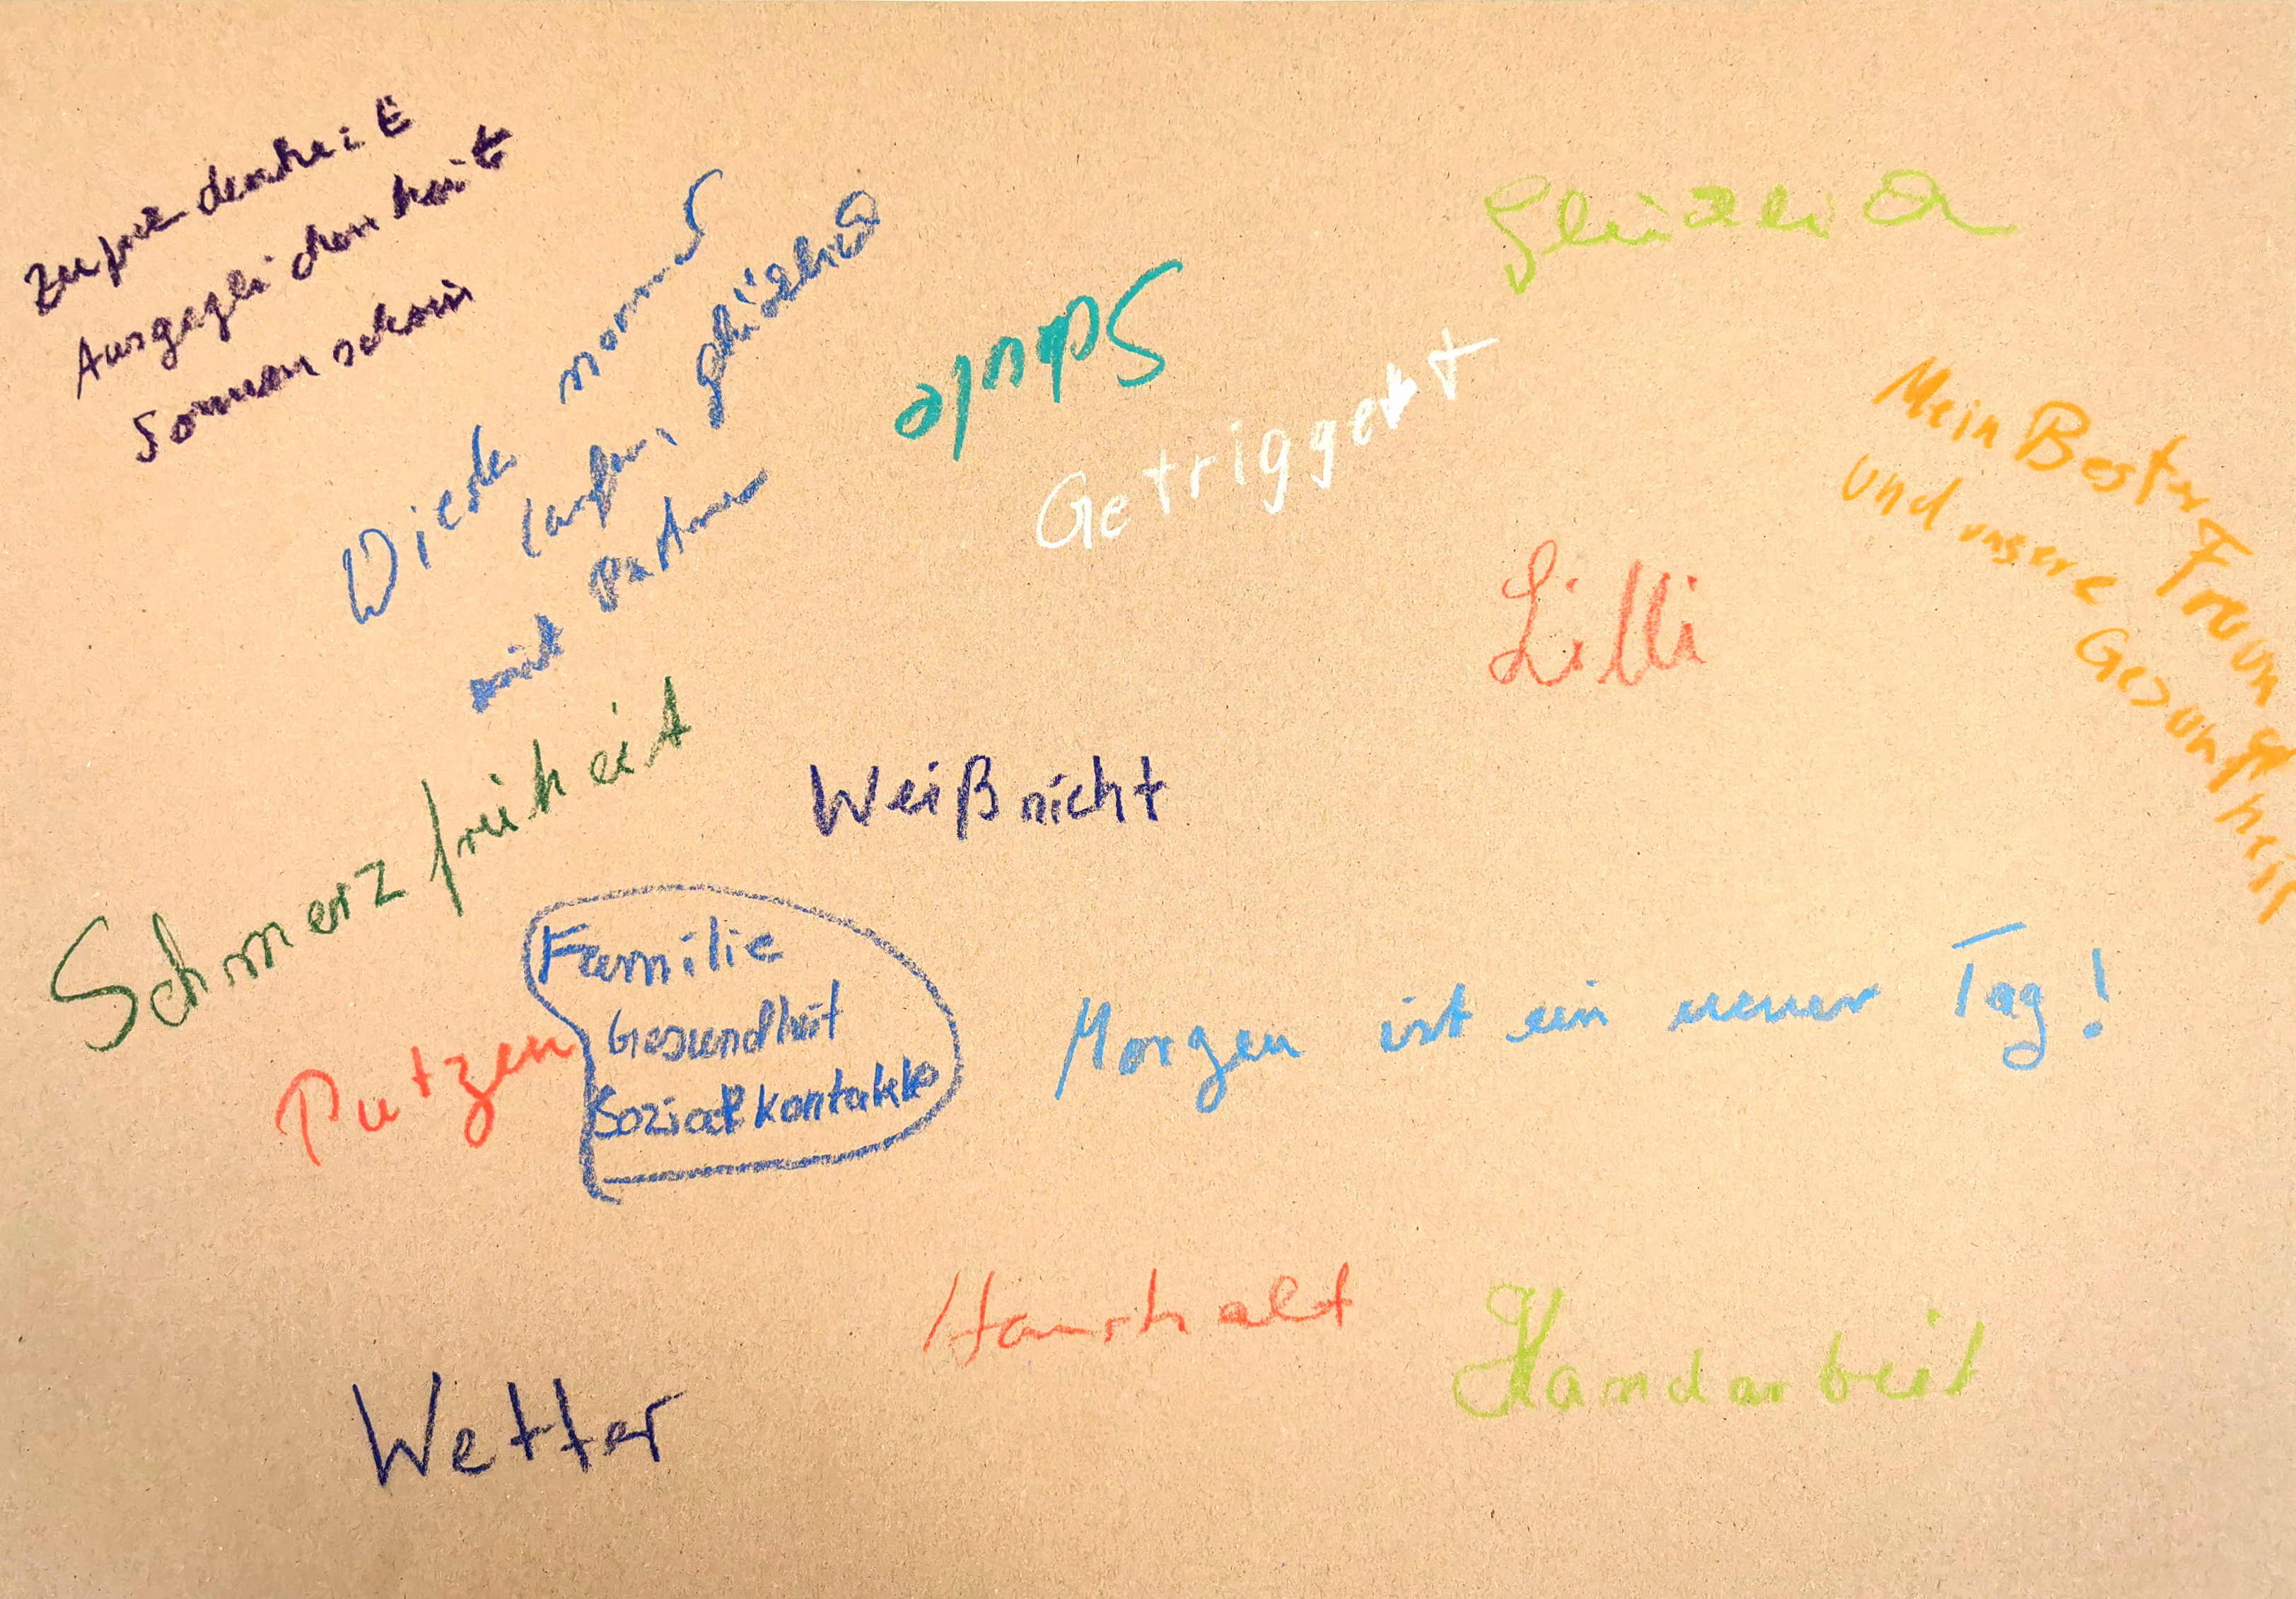 Zufriedenheit
Ausgeglichenheit
Sonnenschein
Wieder normal
laufen, glücklich
mit Partner
Schule
Getriggert
glücklich
Mein Bester Freund
und unsere Gesuntheit
Lilli
Schmerzfreiheit
Weiß nicht
Familie
Gesundheit
Sozialkontakte
Putzen
Morgen ist ein neuer Tag!
Haushalt
Handarbeit
Wetter